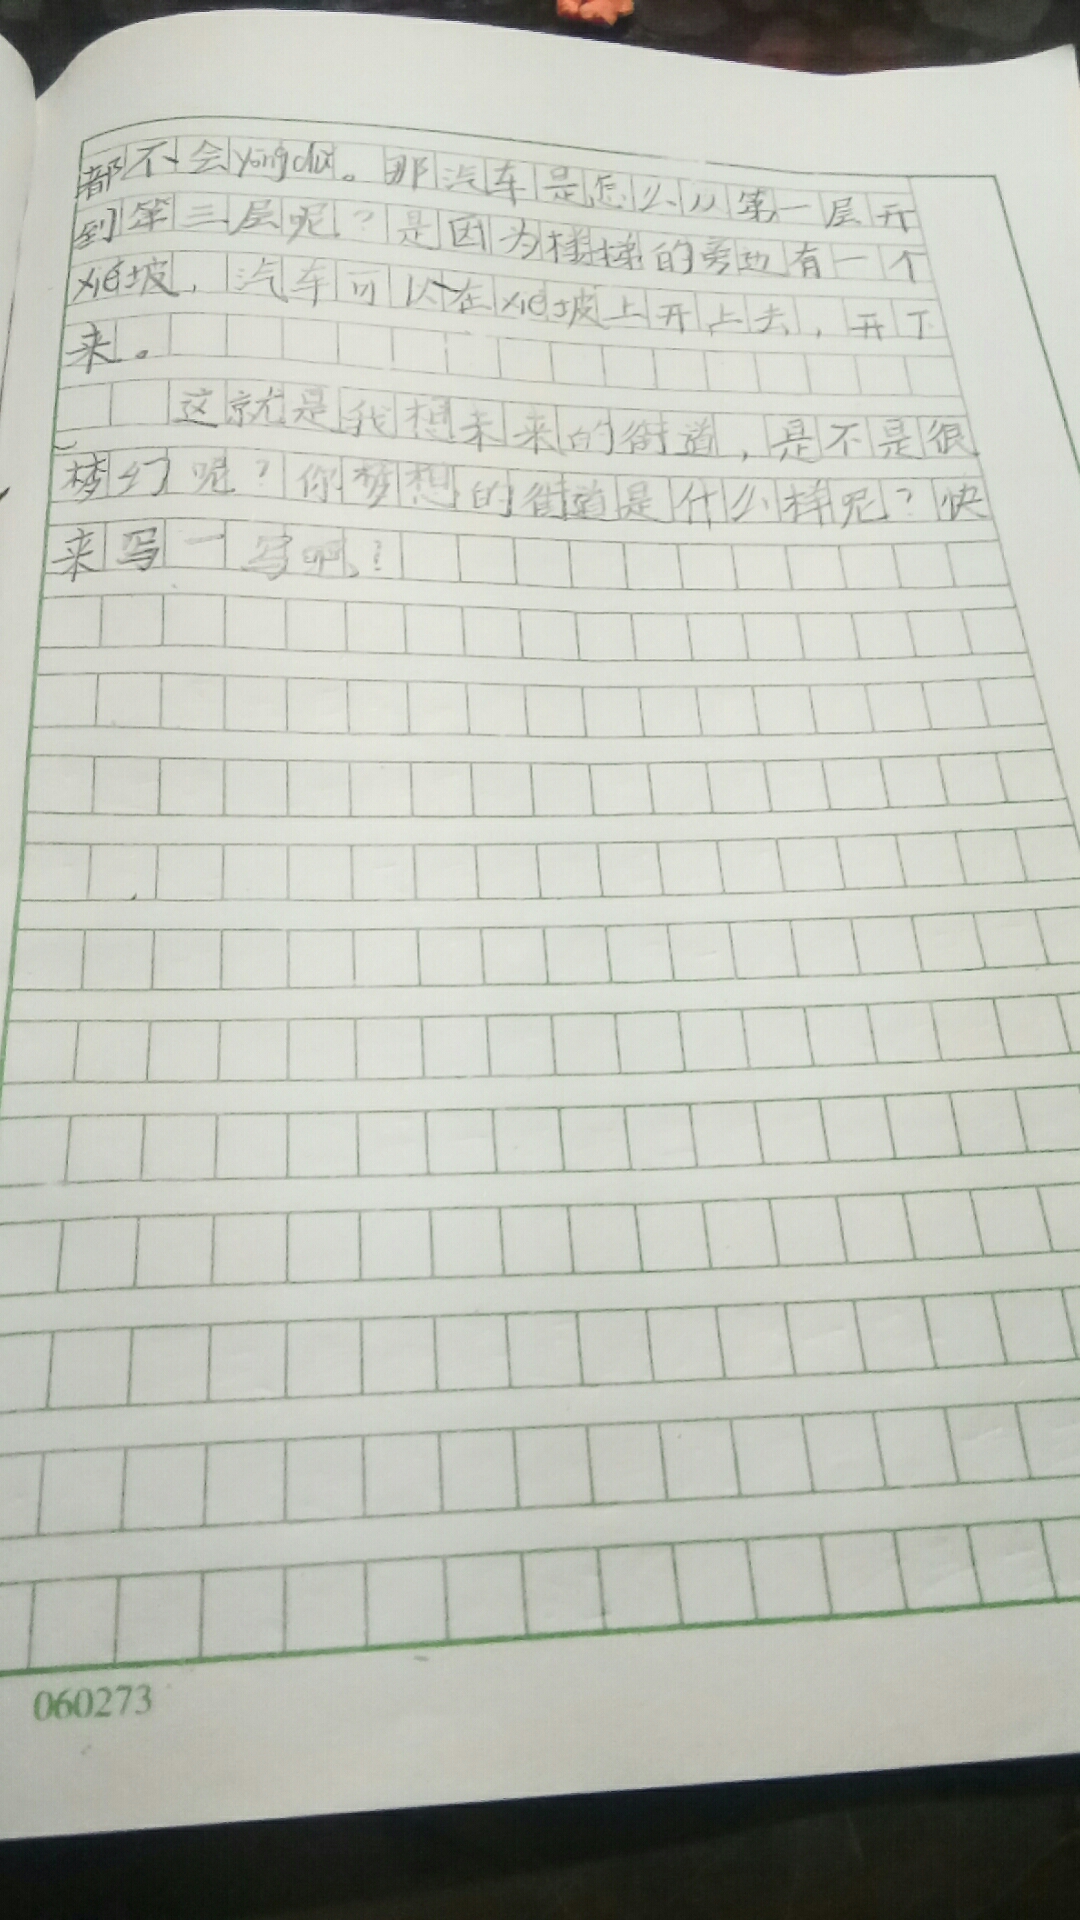 都不会yōngdǔ。那汽车是怎么从第一层开
到第三层呢？是因为楼梯的旁边有一个
xié坡，汽车可以在xié坡上开上去，开下
来。
这就是我想未来的街道，是不是很
梦幻呢？你梦想的街道是什么样呢？快
来写一写吧！
060273